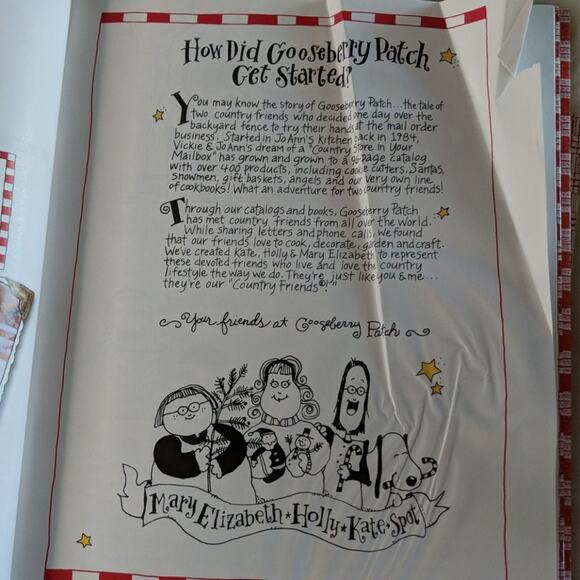 How Did Gooseberry Patch
Get Started?
You may know the story of Gooseberry Patch...the tale of
two country friends who decided one day over the
backyard fence to try their hands at the mail order
business. Started in JoAnn's kitchen back in 1984,
Vickie & JoAnn's dream of a "Country Store in Your
Mailbox" has grown and grown to a 96-page catalog
with over 400 products, including cookie cutters, Santas,
snowmen, gift baskets, angels and our very own line
of cookbooks! What an adventure for two country friends!
Through our catalogs and books, Gooseberry Patch
has met country friends from all over the World.
While sharing letters and phone calls, we found
that our friends love to cook, decorate, garden and craft.
We've created Kate, Holly & Mary Elizabeth to represent
these devoted friends who live and love the country
lifestyle the way we do. They're just like you & me...
they're our "Country Friends®!"
Your friends at Gooseberry Patch
Mary Elizabeth★Holly★Kate★Spot